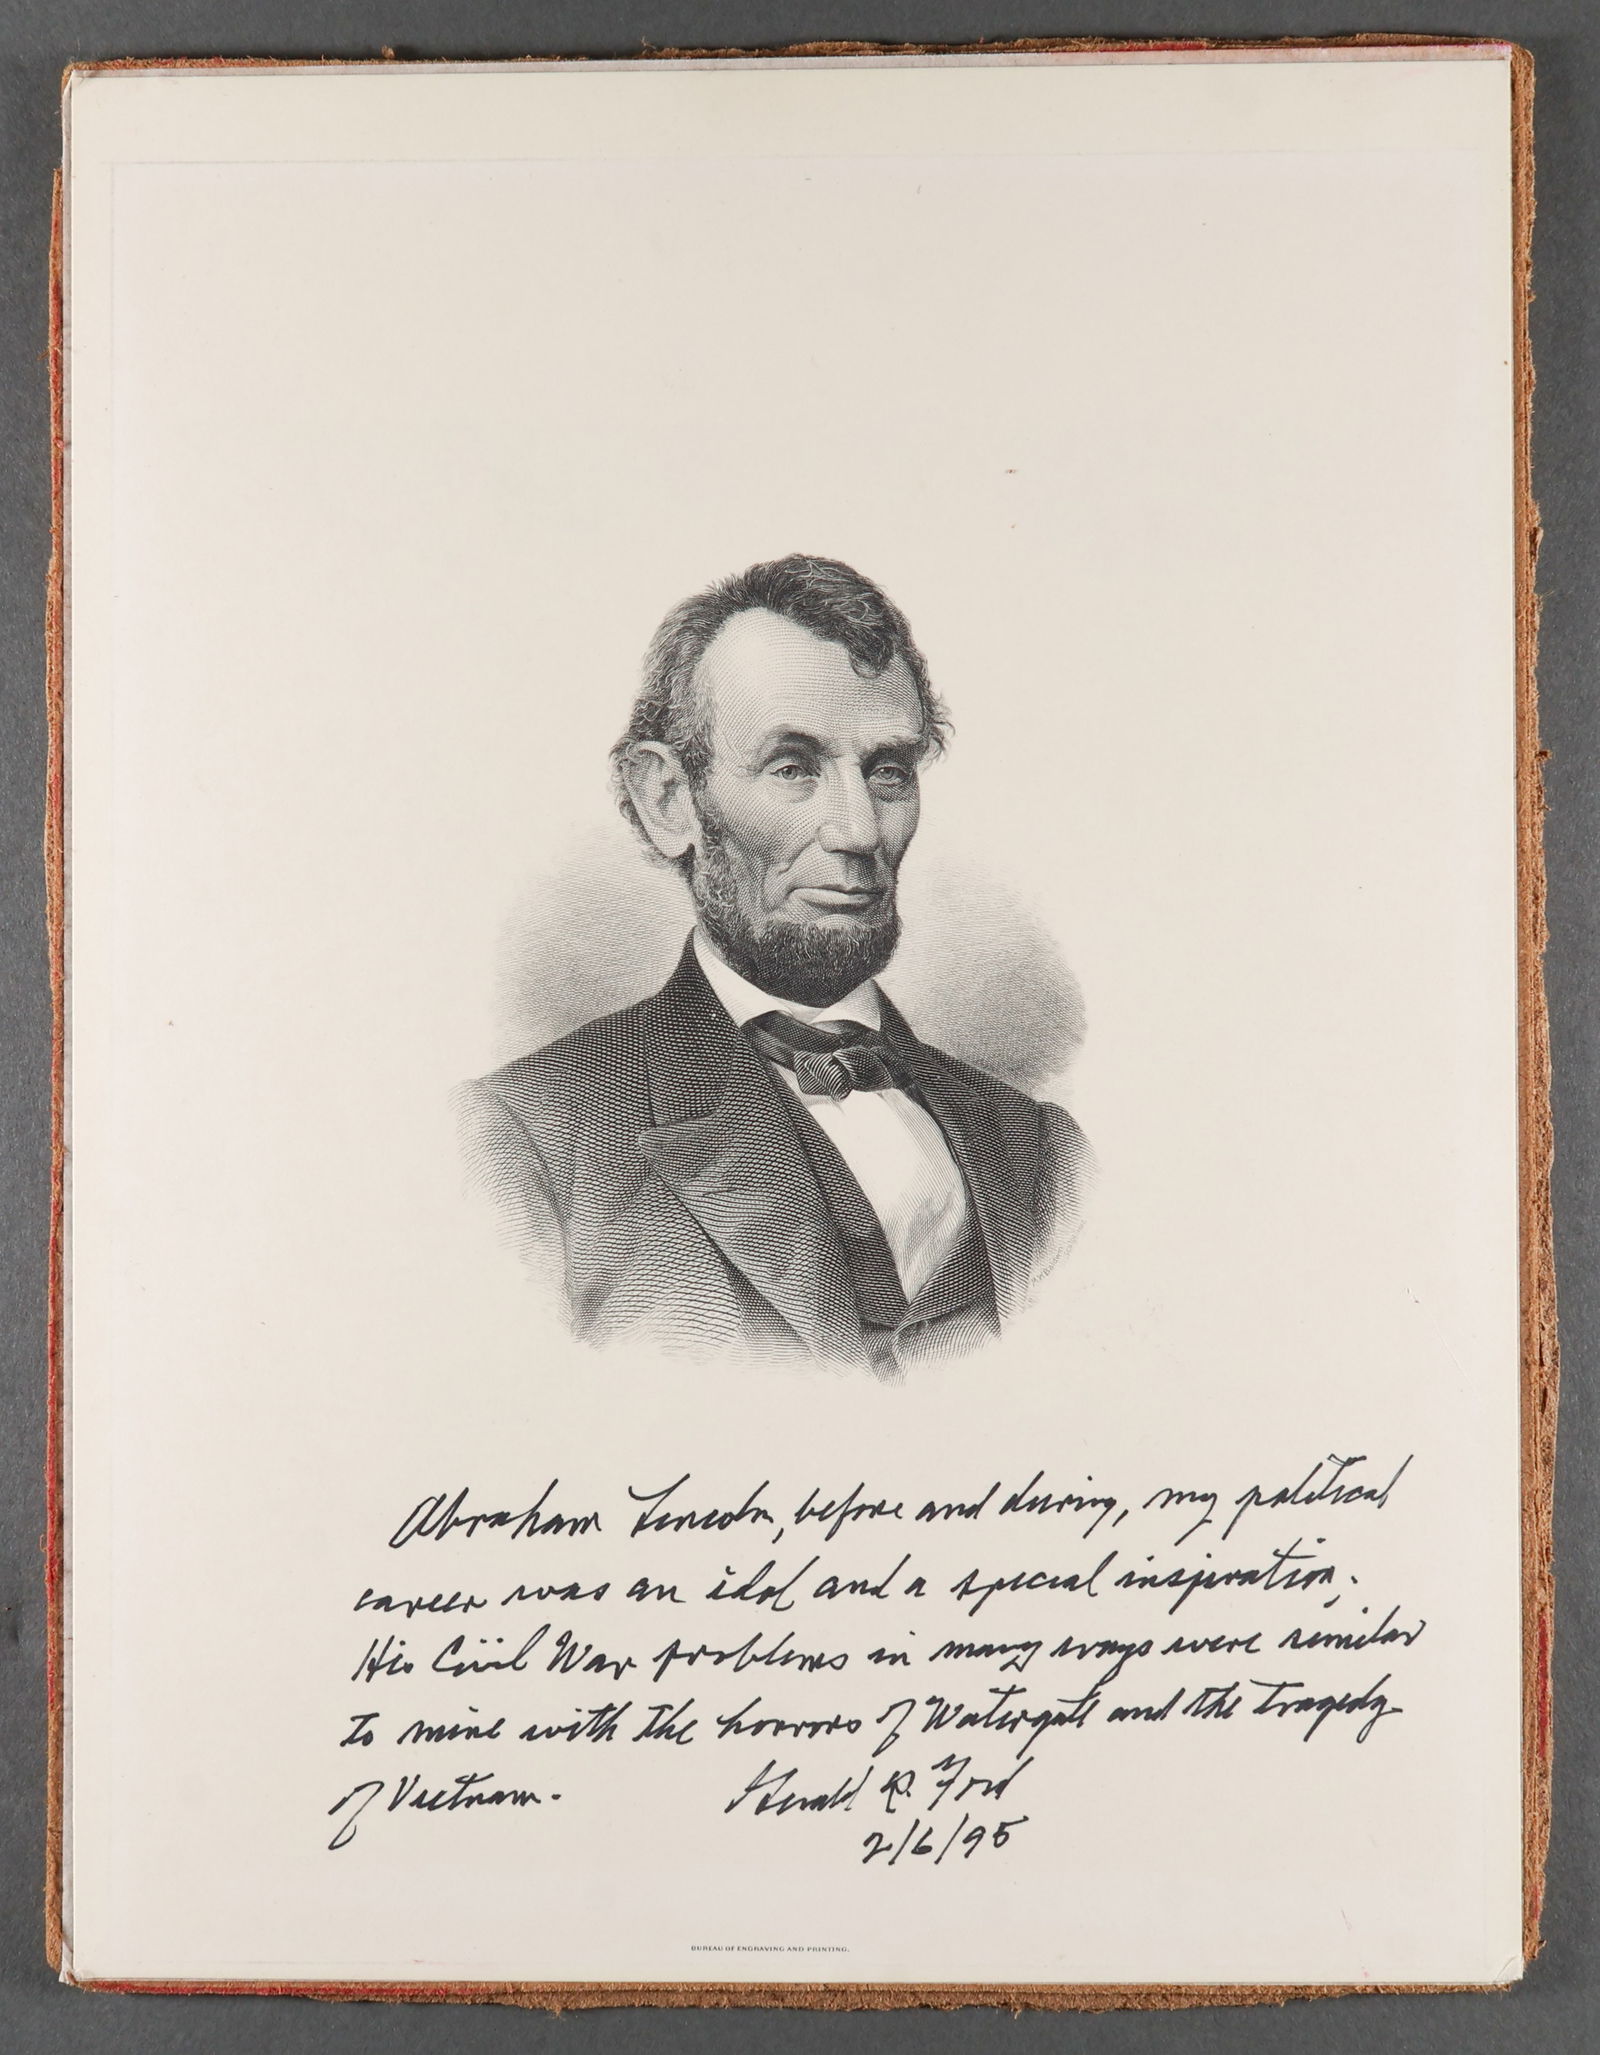 Abraham Lincoln, before and during, my political
career was an idol and a special inspiration.
His Civil War problems in many ways were similar
to mine with the horrors of Watergate and the tragedy
of Vietnam.
Gerald R. Ford
2/6/95
BUREAU OF ENGRAVING AND PRINTING.